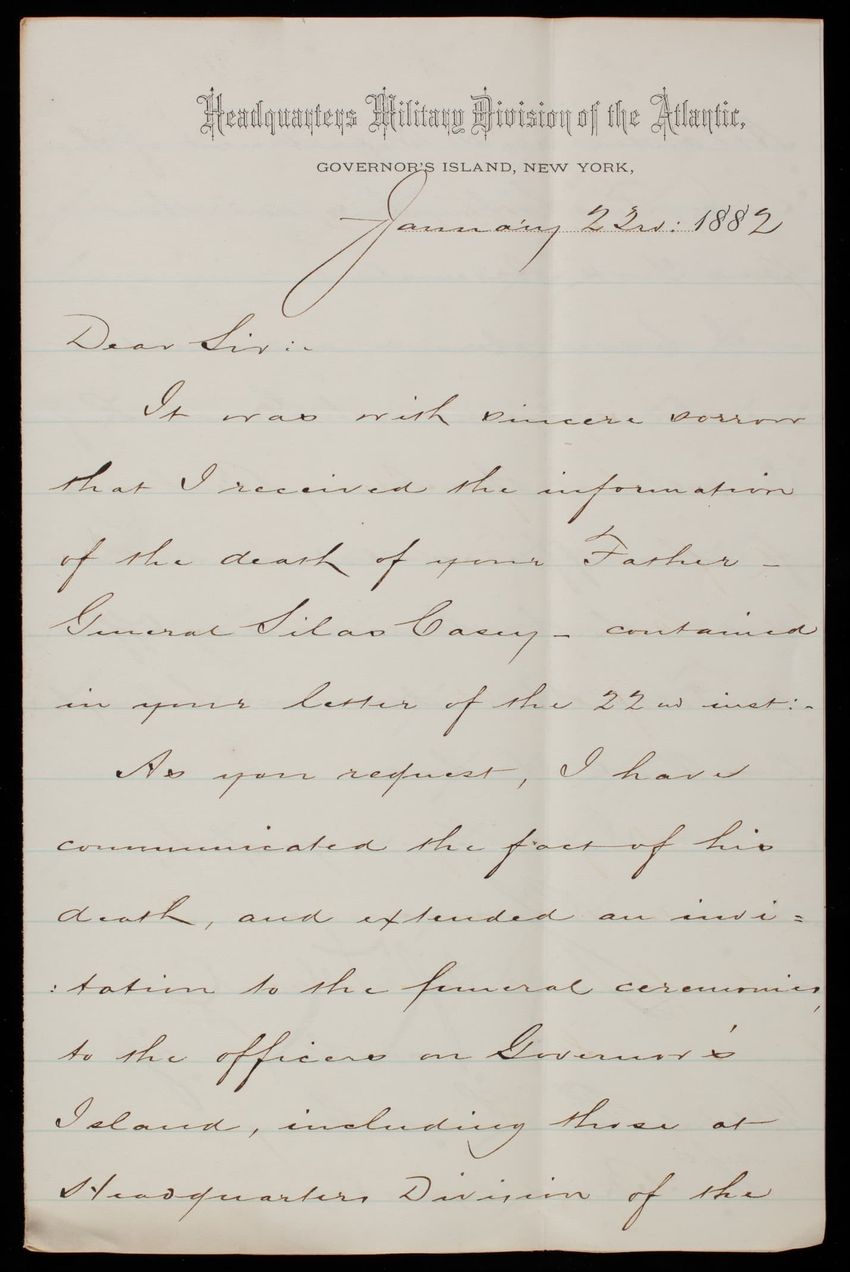 Headquarters Military Division of the Atlantic,
GOVERNOR'S ISLAND, NEW YORK,
January 22nd: 1882
Dear Sir:-
It was with sincere sorrow
that I received the information
of the death of your Father -
General Silas Casey - contained
in your letter of the 22nd inst:-
As you request, I have
communicated the fact of his
death, and extended an invi=
:tation to the funeral ceremonies,
to the officers on Governor's
Island, including those at
Headquarters Division of the